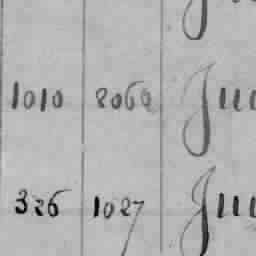 1010 2060 Ju
326 1027 Ju